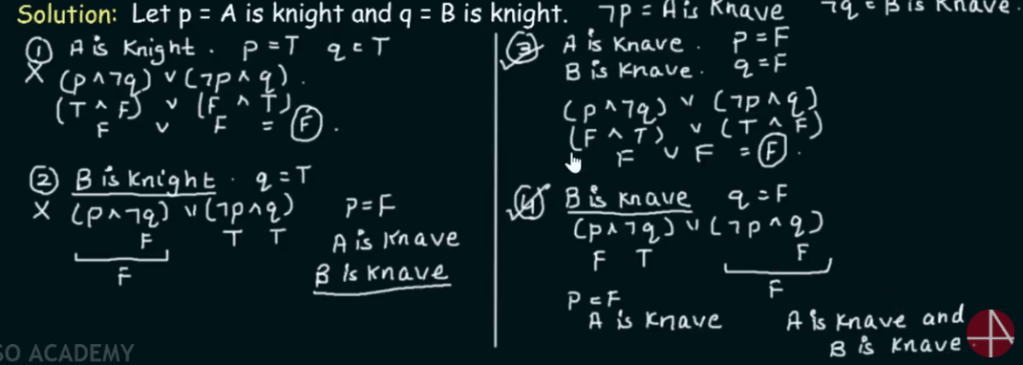 Solution: Let p = A is knight and q = B is knight. ¬p = A is Knave ¬q = B is Knave.
① A is Knight. P=T q=T
X (p∧¬q) ∨ (¬p∧q).
(T ∧ F) ∨ (F ∧ T)
F ∨ F = F.
② B is Knight. q=T
X (p∧¬q) ∨ (¬p∧q) P=F
F T T A is Knave
F B Is Knave
③ A is Knave. P=F
B is Knave. q=F
(p∧¬q) ∨ (¬p∧q)
(F ∧ T) ∨ (T ∧ F)
F ∨ F = F.
④ B is Knave q=F
(p∧¬q) ∨ (¬p∧q)
F T F
F
P=F
A is Knave A is Knave and
B is Knave.
SO ACADEMY